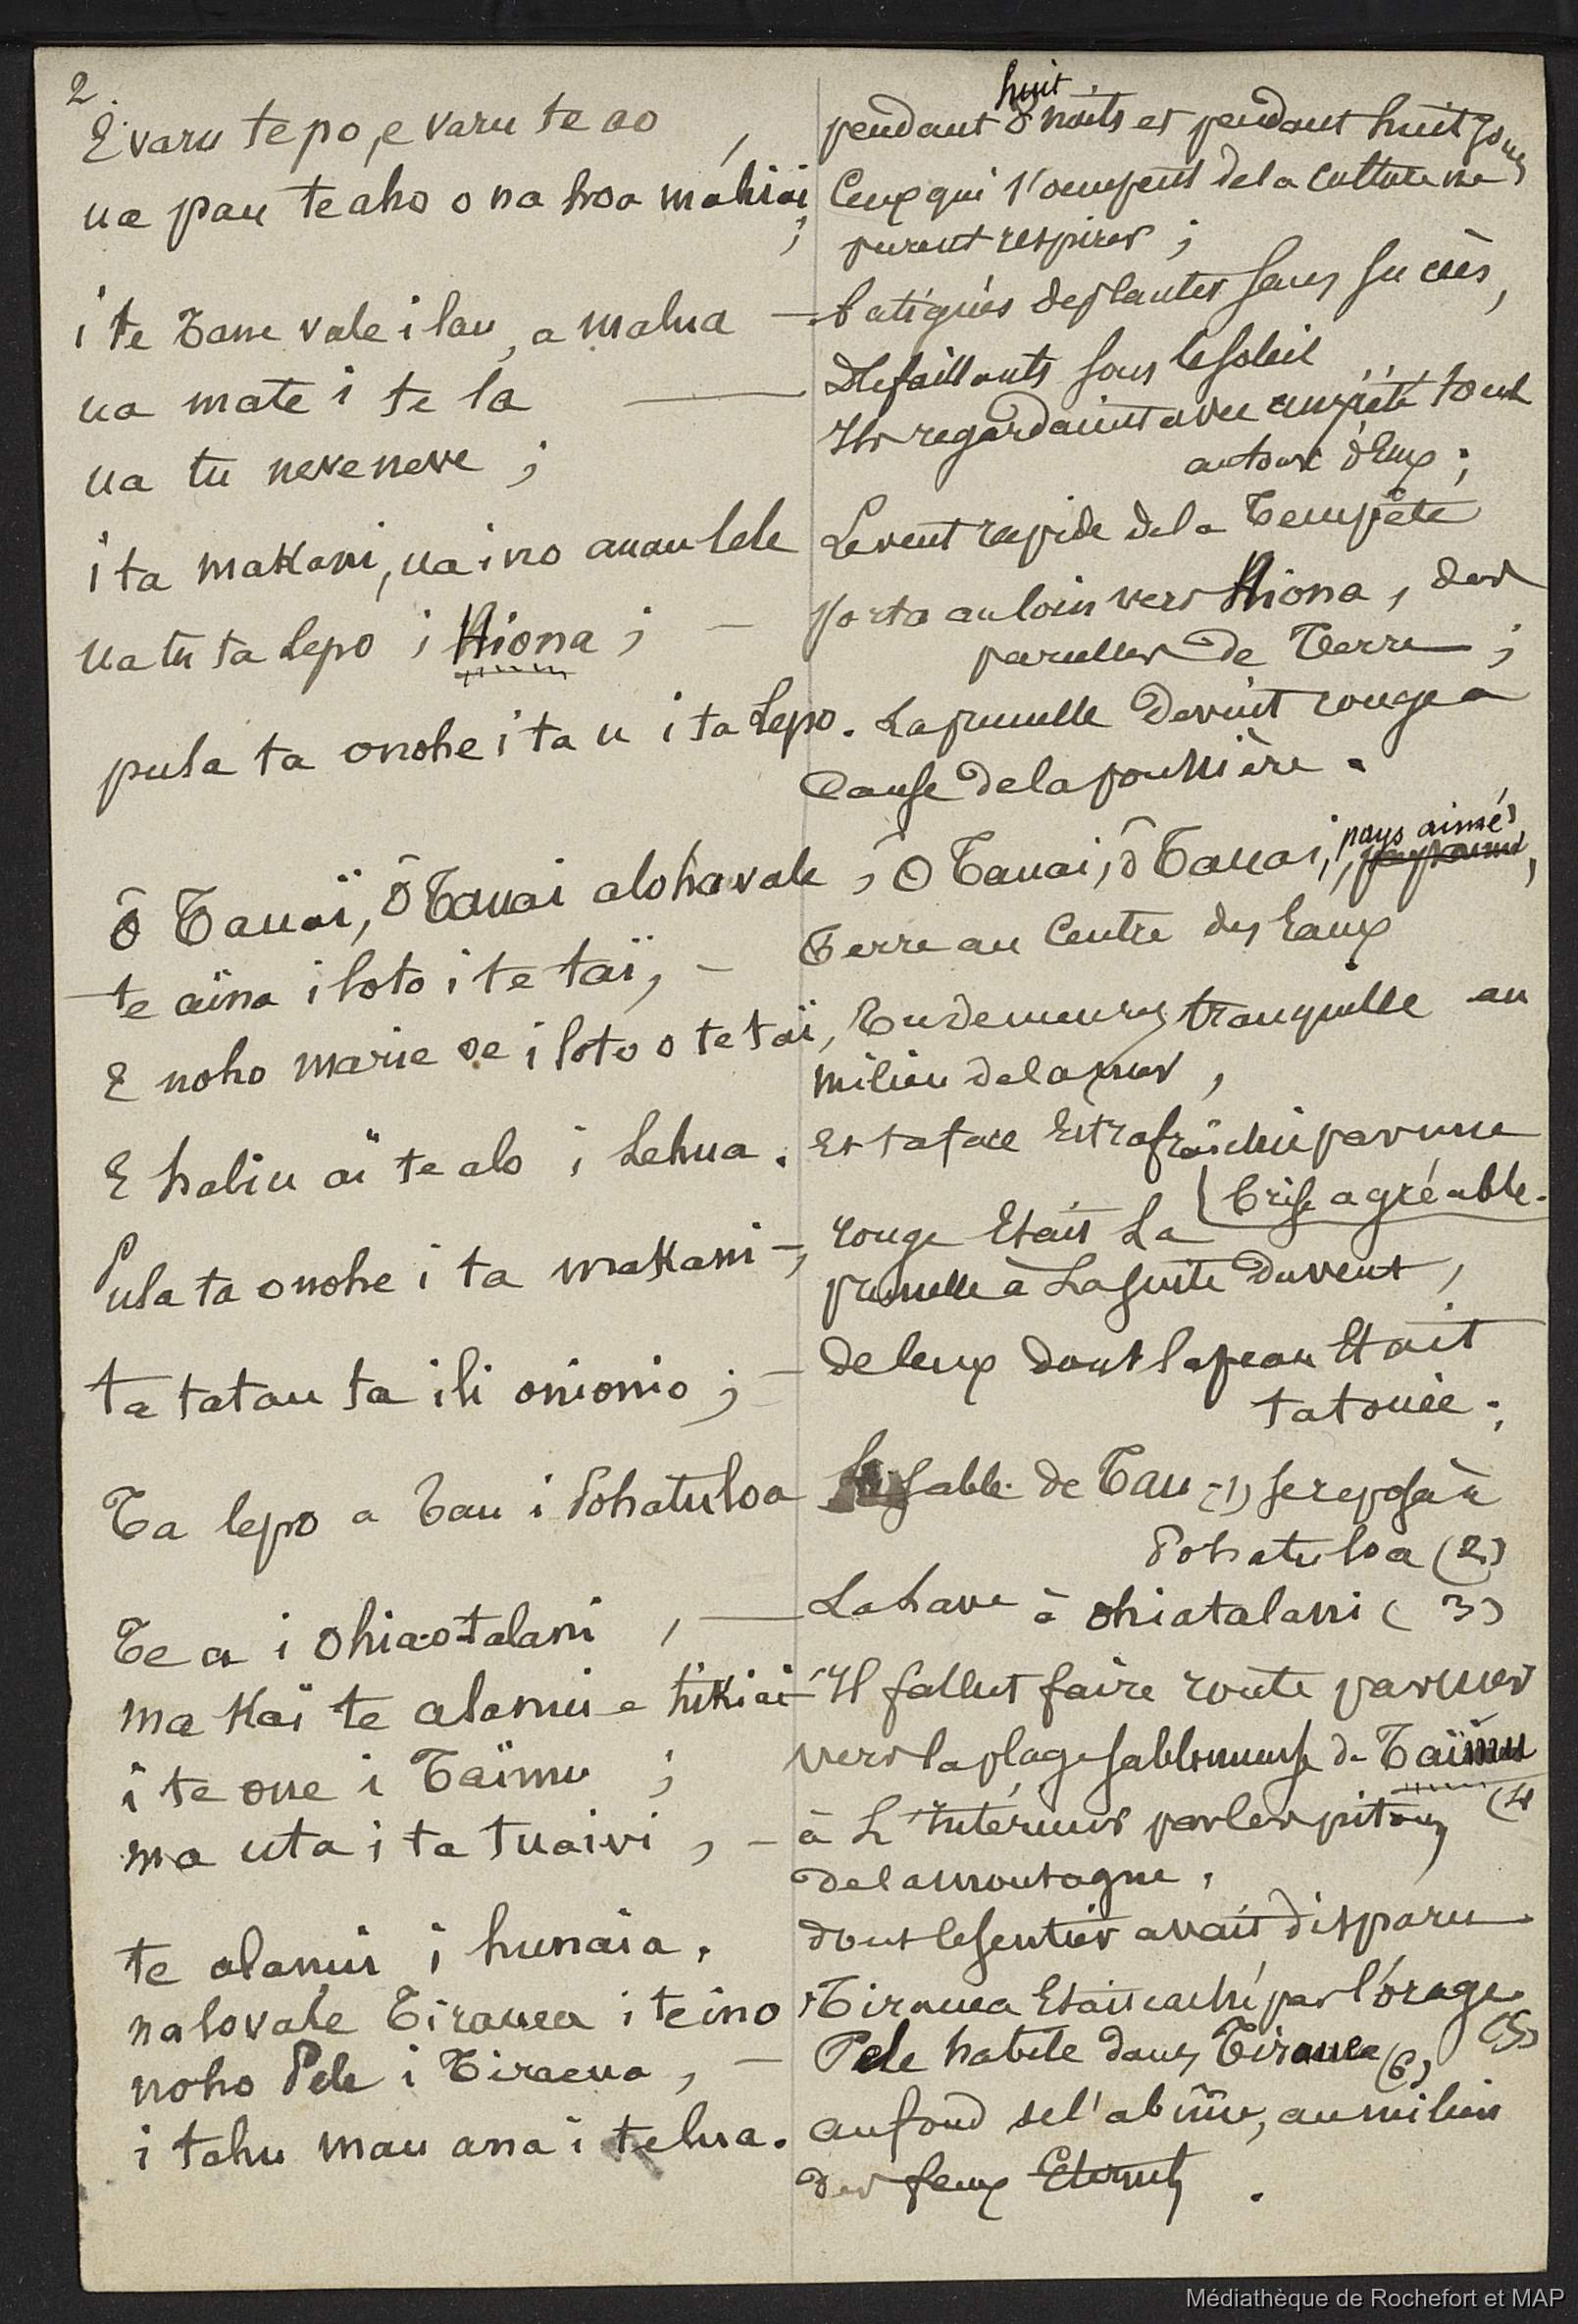 2.
E varu te po, e varu te ao,
ua pau te aho o na hoa mahiai;
i te Tanu vale i lau, a malua —
ua mate i te la —
ua tu neveneve ;
i ta makani, ua ino auau lele
ua tu ta Lepo i Hiona ; —
pula ta onohe i ta u i ta Lepo.
ô Tauaï, ô Tauai aloha vale,
te aïna i loto i te taï, —
E noho marie oe i loto o te taï,
E haliu aï te alo i Lehua.
Pula ta onohe i ta makani —,
ta tatau ta ili onionio ; —
Ta lepo a Tau i Pohatuloa
Te a i Ohiaotalani , —
ma kaï te alanui e hikiai
i te one i Taïmu ;
ma uta i ta tuaivi , —
te alanui i hunaia.
nalovale Tirauea i te ino
noho Pele i Tiraeua, —
i tahu mau ana i te lua.
huit
pendant 8 nuits et pendant huit jours
Ceux qui s'occupent de la culture ne
purent respirer ;
fatigués de planter sans succès,
Défaillants sous le soleil
Ils regardaient avec anxiété tout
autour d'Eux ;
Le vent rapide de la Tempête
porta au loin vers Hiona, des
parcelles de Terre ;
La prunelle devint rouge a
Cause de la poussière.
Ô Tauai, ô Tauai, pays aimé,
Terre au Centre des Eaux
Tu demeures tranquille au
milieu de la mer,
Et ta face Est rafraîchie par une
brise agréable.
rouge Etait La
prunelle à La suite du vent,
de ceux dont la peau Etait
tatouée ;
Le sable de Tau (1) se reposa à
Pohatuloa (2)
La lave à Ohiatalani (3)
Il fallut faire route par mer
vers la plage sablonneuse de Taïmu
(4
à L'Intérieur par les pitons
de la montagne,
dont le sentier avait disparu
Tirauea Etait caché par l'orage
(5)
Pele habite dans Tirauea (6)
au fond de l'abîme, au milieu
des feux Eternels.
Médiathèque de Rochefort et MAP